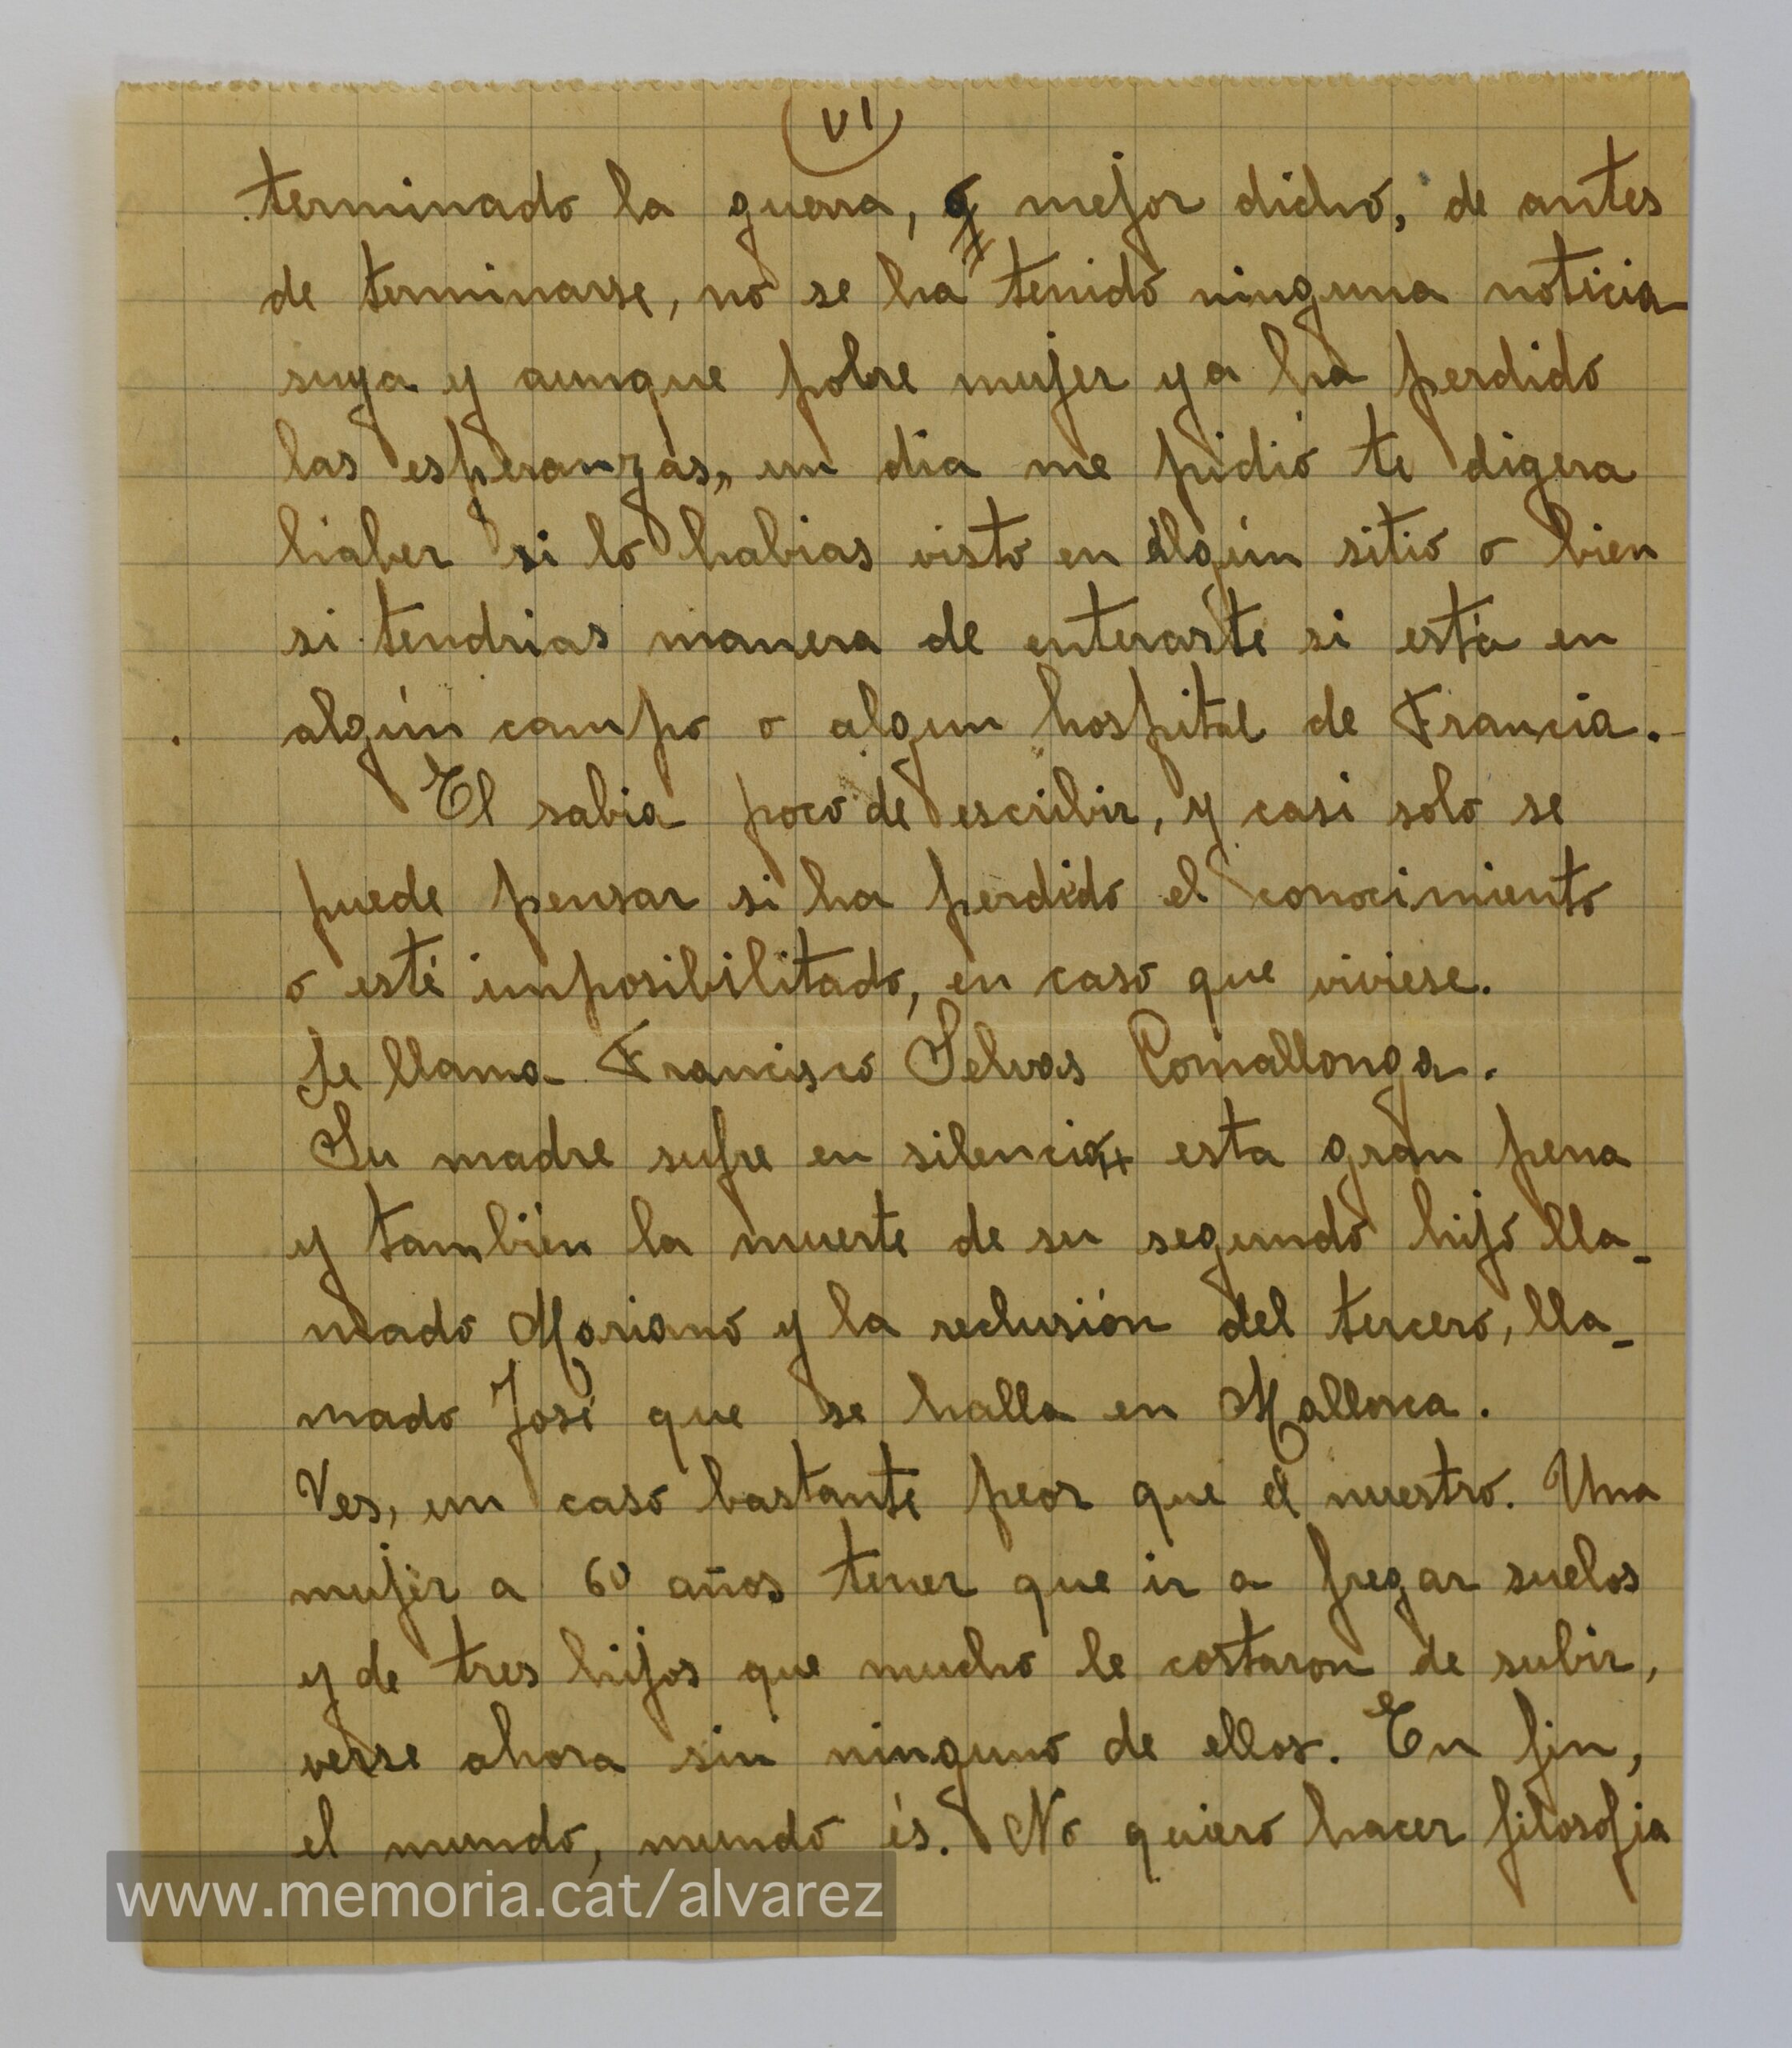 VI
terminado la guerra, o mejor dicho, de antes
de terminarse, no se ha tenido ninguna noticia
suya y aunque pobre mujer ya ha perdido
las esperanzas,, un dia me pidió te digera
haber si lo habias visto en algún sitio o bien
si tendrias manera de enterarte si está en
algún campo o algun hospital de Francia.
El sabia poco de escribir, y casi solo se
puede pensar si ha perdido el conocimiento
o esté imposibilitado, en caso que viviese.
Se llama Francisco Selvas Comallonga.
Su madre sufre en silencio esta gran pena
y también la muerte de su segundo hijo lla-
mado Mariano y la reclusión del tercero, lla-
mado José que se halla en Mallorca.
Ves, un caso bastante peor que el nuestro. Una
mujer a 60 años tener que ir a fregar suelos
y de tres hijos que mucho le costaron de subir,
verse ahora sin ninguno de ellos. En fin,
el mundo, mundo és. No quiero hacer filosofia
www.memoria.cat/alvarez